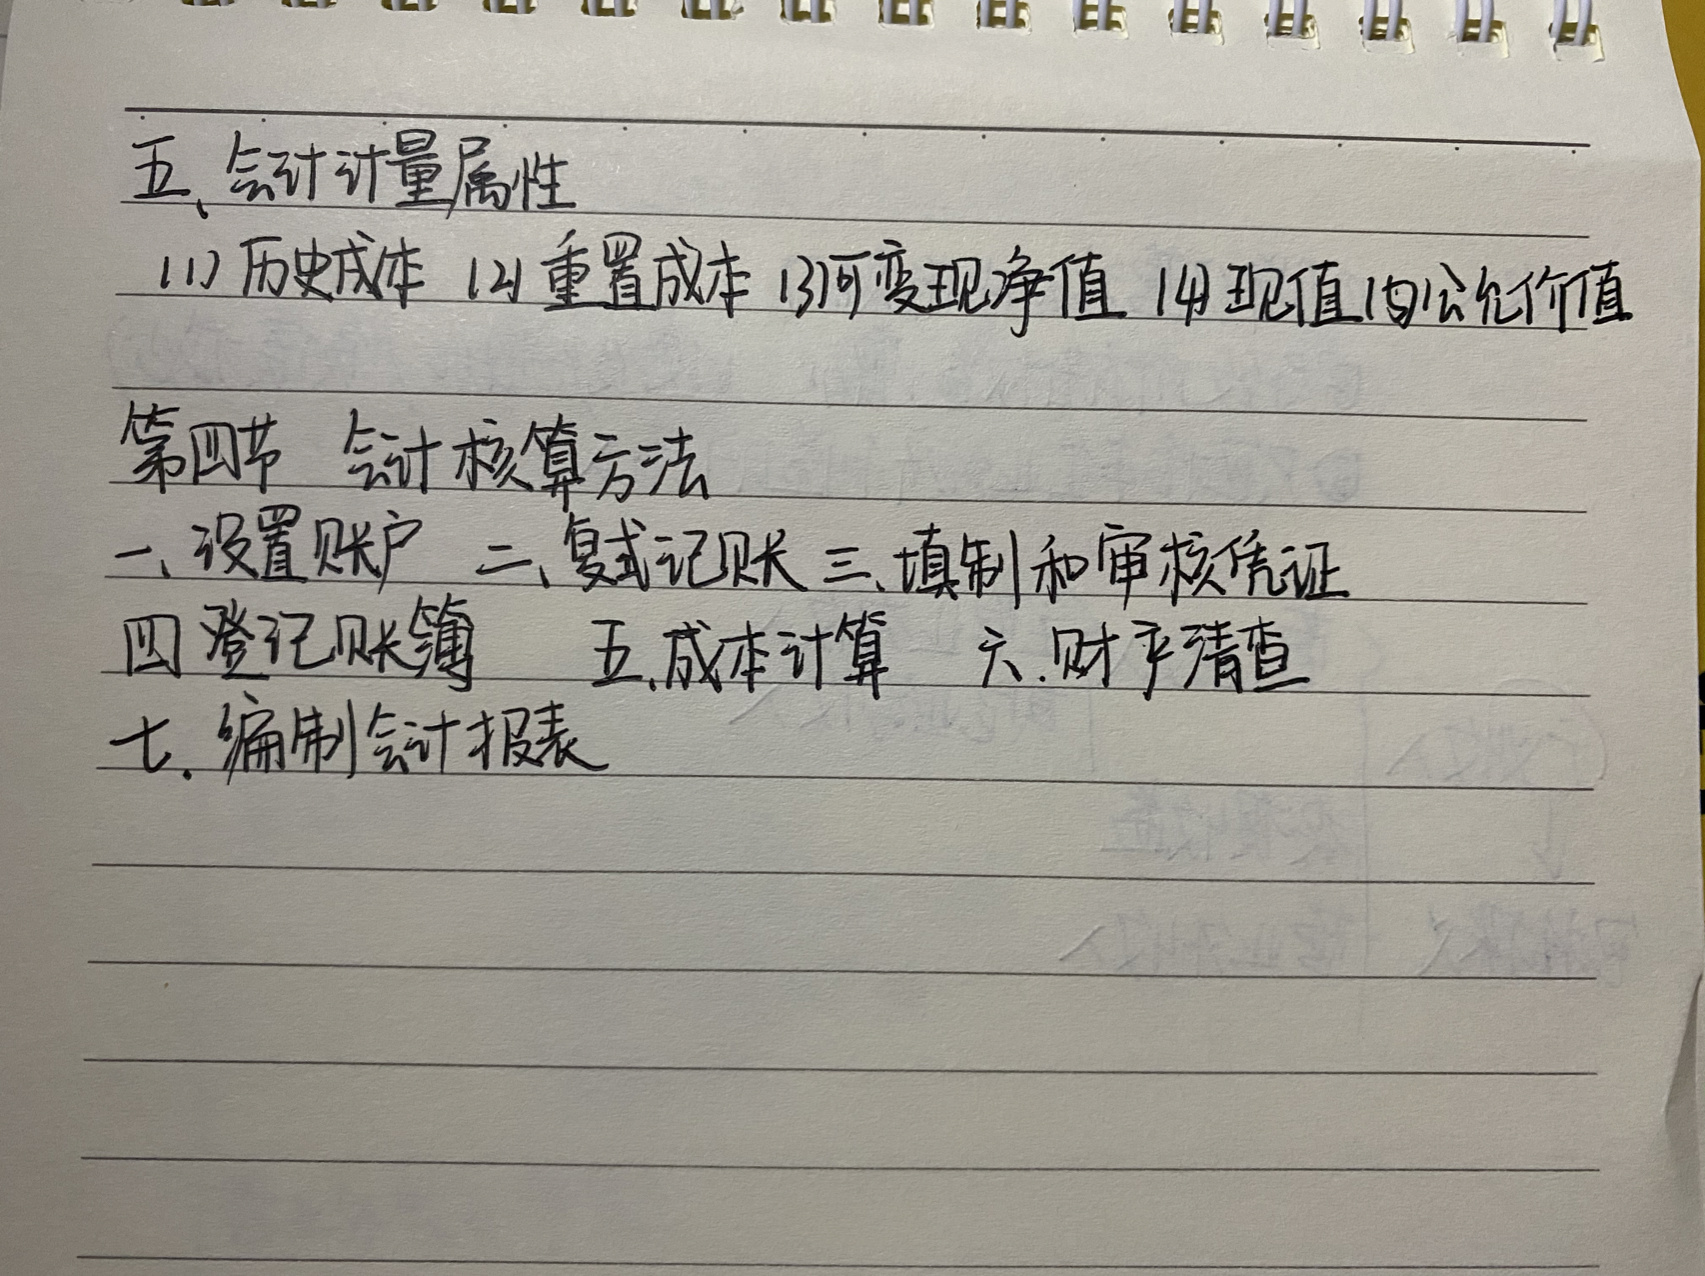 五、会计计量属性
(1)历史成本 (2)重置成本 (3)可变现净值 (4)现值 (5)公允价值
第四节 会计核算方法
一、设置账户 二、复式记账 三、填制和审核凭证
四 登记账簿 五.成本计算 六.财产清查
七.编制会计报表